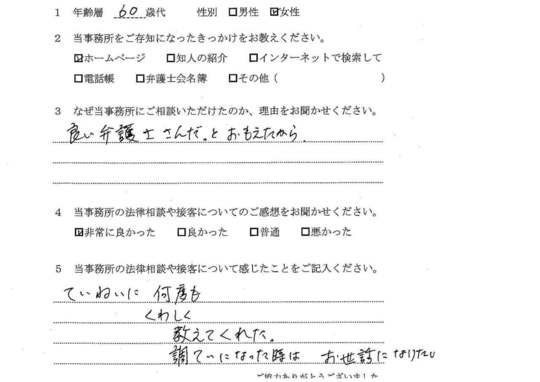 1 年齢層 60 歳代 性別 □男性 ☑女性
2 当事務所をご存知になったきっかけをお教えください。
☑ホームページ □知人の紹介 □インターネットで検索して
□電話帳 □弁護士会名簿 □その他( )
3 なぜ当事務所にご相談いただけたのか、理由をお聞かせください。
良い弁護士さんだ。とおもえたから
4 当事務所の法律相談や接客についてのご感想をお聞かせください。
☑非常に良かった □良かった □普通 □悪かった
5 当事務所の法律相談や接客について感じたことをご記入ください。
ていねいに 何度も
くわしく
教えてくれた。
調てい になった時は お世話になりたい
ご協力ありがとうございました